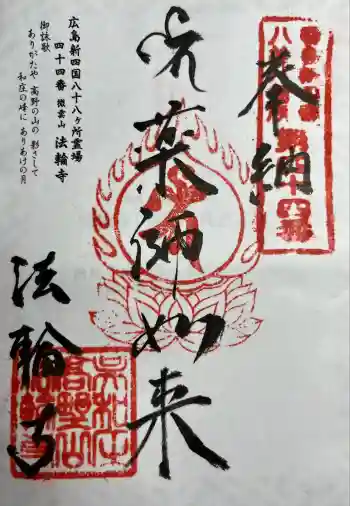 奉納
薬師如来
法輪寺
広島新四国八十八ヶ所霊場
四十四番 微雲山 法輪寺
御詠歌
ありがたや 高野の山の 影さして
和庄の峰に ありあけの月